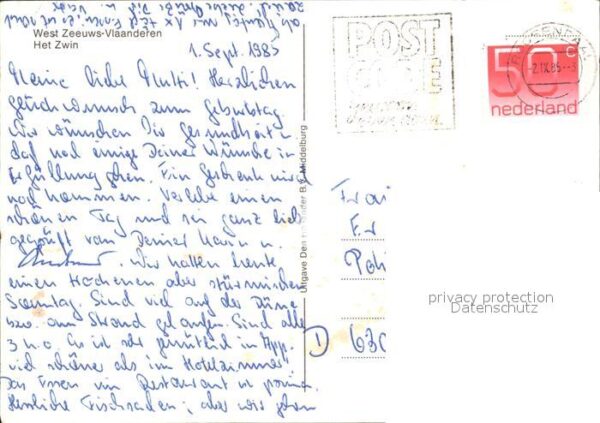 West Zeeuws-Vlaanderen
Het Zwin
1. Sept. 1985
Meine liebe Mutti! Herzlichen
Glückwunsch zum Geburtstag
Wir wünschen Dir Gesundheit u.
daß noch einige Deiner Wünsche in
Erfüllung gehen. Ein Geschenk wird
noch kommen. Verlebe einen
schönen Tag und sei ganz lieb
gegrüßt von Deiner Karin u.
Wir hatten heute
einen trockenen aber stürmischen
Sonntag. Sind viel auf der Düne
bzw. am Strand gelaufen. Sind alle
3 k.o. Es ist sehr gemütlich im App.
viel schöner als im Hotelzimmer.
Das Essen im Restaurant ist prima.
Herrliche Fischsachen; aber wir gehen
Uitgave B.V. Middelburg
POST
CODE
-2.IX.85
50c
nederland
Frau
Er
Pohl
D 630
privacy protection
Datenschutz